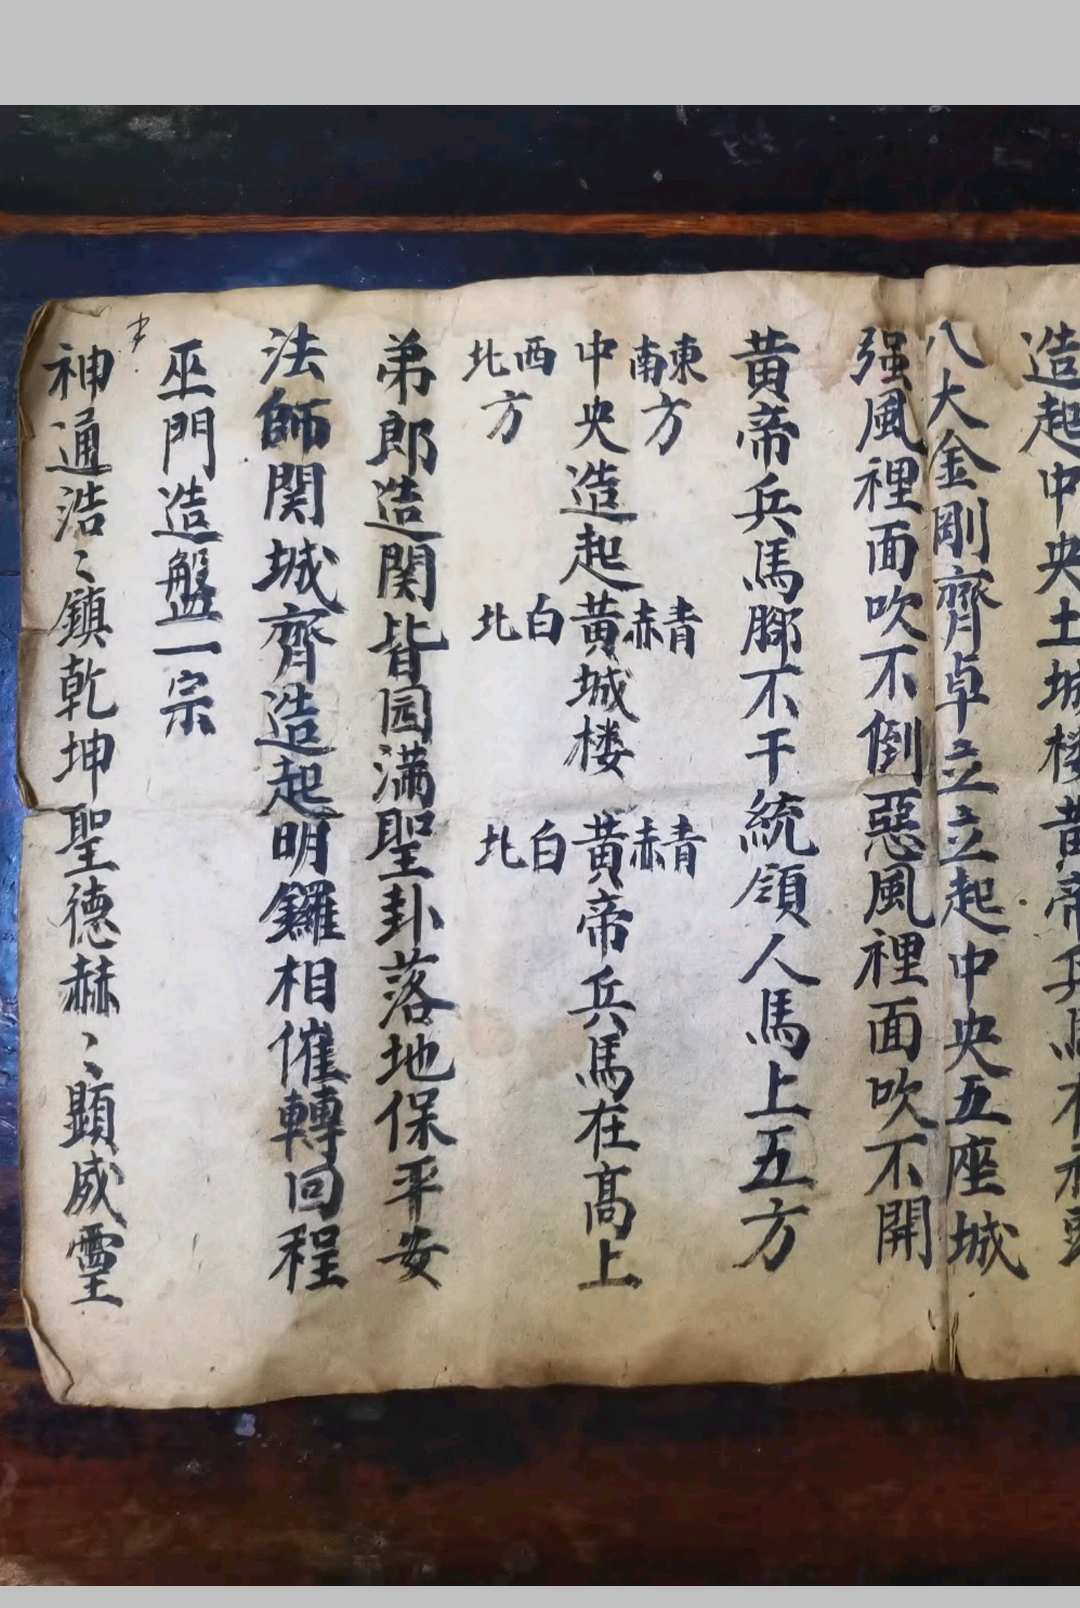 造起中央土城楼黄帝兵馬在
八大金剛齊卓立立起中央五座城
强風裡面吹不倒惡風裡面吹不開
黄帝兵馬腳不干統領人馬上五方
東南方 青赤 青赤
中央造起黄城楼 黄帝兵馬在高上
西北方 白北 白北
弟郎造関皆园满聖卦落地保平安
法師関城齊造起明鑼相催轉回程
巫門造盤一宗
神通浩〻鎮乾坤聖德赫〻顕威霊